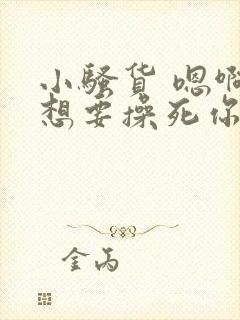 小骚货 嗯啊
想要操死你
金丙